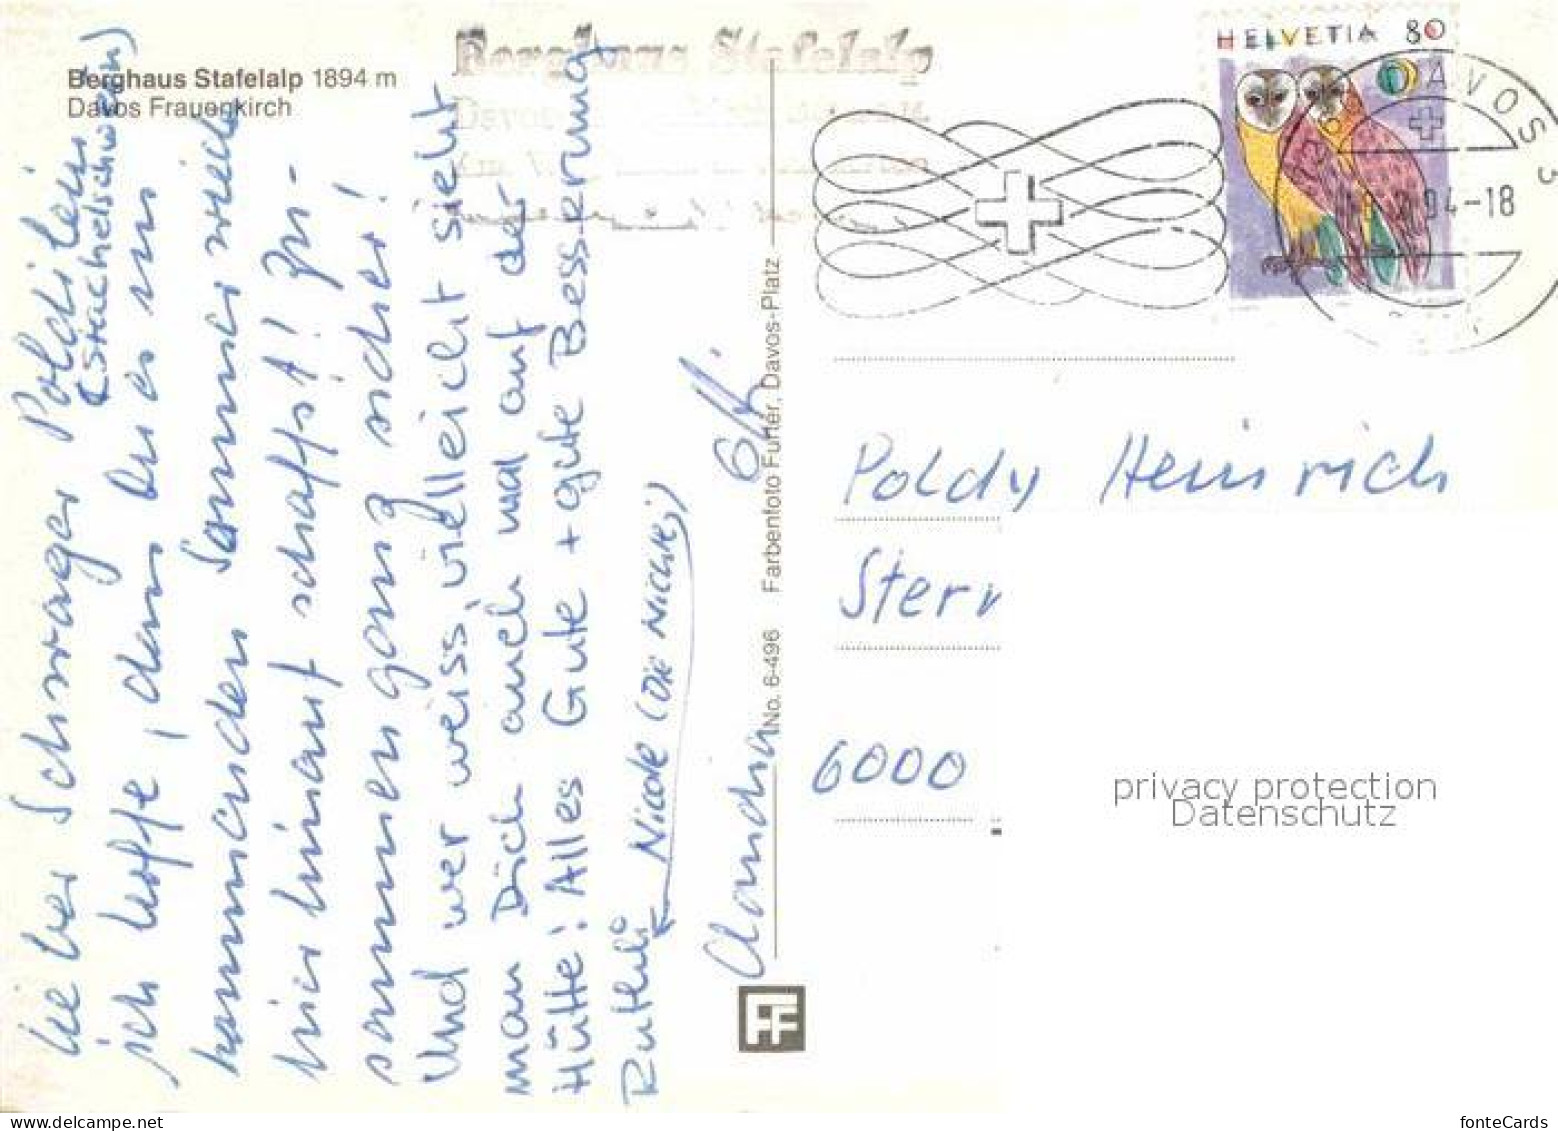 Berghaus Stafelalp 1894 m
Davos Frauenkirch
Berghaus Stafelalp
Davos
HELVETIA 80
DAVOS
94-18
Lieber Schwager Poldilein
(Stachelschwein)
ich hoffe, dass du es im
kommenden Sommer wieder
hier hinauf schaffst! Zu-
sammen ganz sicher!
Und wer weiss, vielleicht sieht
man Dich auch mal auf der
Hütte! Alles Gute + gute Besserung
Ruthli Nicole (Die Nichte;)
Claudia
No. 6-496 Farbenfoto Furter, Davos-Platz
FF
Poldy Heinrich
Stern
6000
privacy protection
Datenschutz
fonteCards